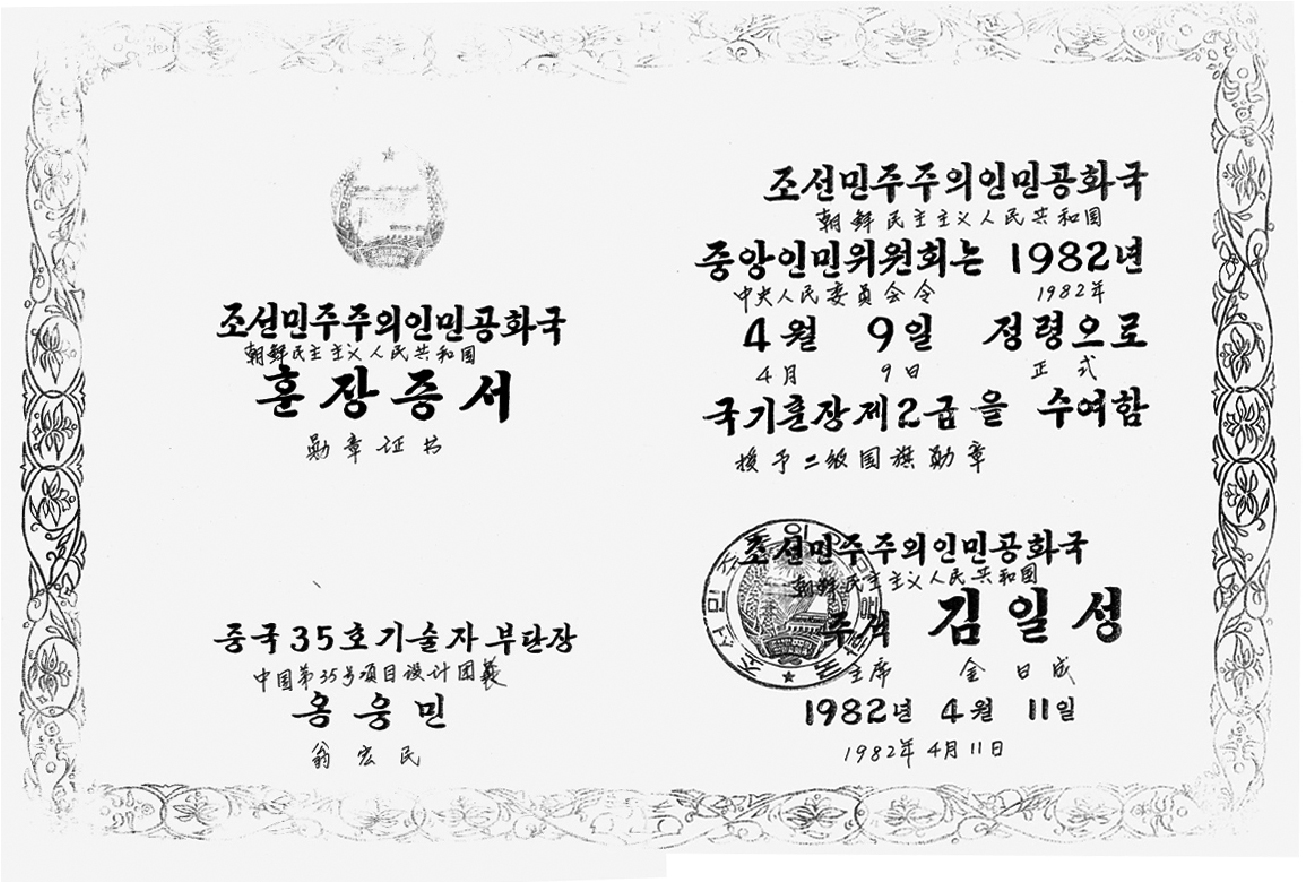 조선민주주의인민공화국
朝鲜民主主义人民共和国
훈장증서
勋章证书
중국35호기술자부단장
中国第35号项目设计团
옹웅민
翁宏民
조선민주주의인민공화국
朝鲜民主主义人民共和国
중앙인민위원회는 1982년
中央人民委员会令 1982年
4월 9일 정령으로
4月 9日 正式
국기훈장제2급을 수여함
授予二级国旗勋章
조선민주주의인민공화국
朝鲜民主主义人民共和国
주석 김일성
主席 金日成
1982년 4월 11일
1982年4月11日